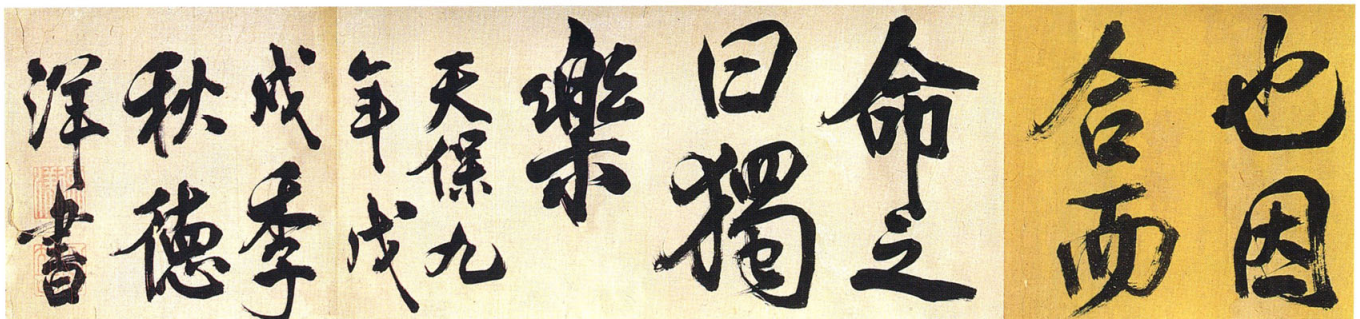 也因
合而
命之
曰獨
樂
天保九
年戊
戌季
秋德
洋書